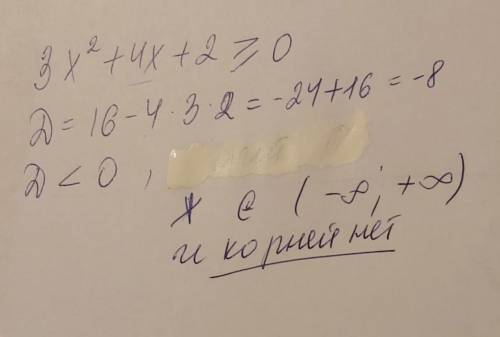 3x² + 4x + 2 ≥ 0
D = 16 - 4 · 3 · 2 = -24 + 16 = -8
D < 0 ,
x ∈ (-∞; +∞)
и корней нет